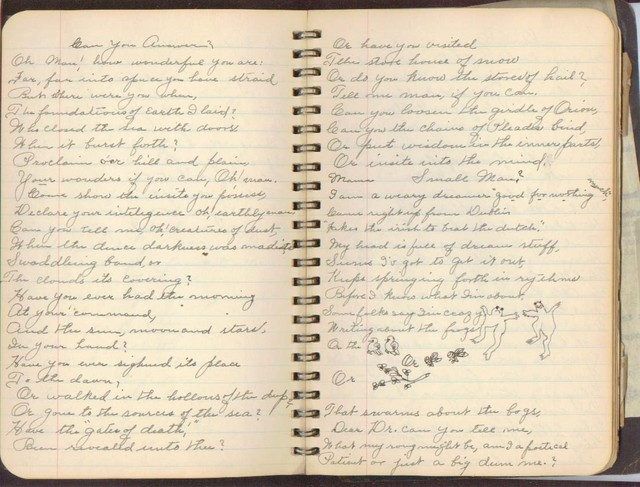 Can You Answer?
Oh Man! how wonderful you are:
Far, far into space you have straid
But where were you when,
The foundations of Earth I laid?
Who closed the sea with doors
When it burst forth?
Proclaim o'er hill and plain,
Your wonders if you can, Oh! man.
Come show the insite you possess,
Declare your intelegence oh, earthly man
Can you tell me, oh, creatures of dust,
When the dence darkness was made its
Swaddling band, or
The clouds its covering?
Have you ever had the morning
At your command,
And the sun, moon and stars,
In your hand?
Have you ever signed its place
To the dawn,
Or walked in the hollows of the deep,
Or gone to the sources of the sea?
Have the "gates of death,"
Been revealed unto thee?
Or have you visited
The store house of snow
Or do you know the stores of hail?,
Tell me man, if you can.
Can you loosen the girdle of Orion,
Can you the chains of Pleades bind,
Or put wisdom in the inner parts,
Or insite into the mind.
Mama Small Man?
I am a weary dreamer good for nothing
Came right up from Dublin
"Takes the irish to beat the dutch."
My head is full of dream stuff,
Seems I's got to get it out,
Keeps springing forth in rythms
Before I knows what I'm about,
Some folks say I'm crazy
Writing about the frogs
Or the
Or
Or
That swarms about the bogs,
Dear Dr. can you tell me,
What my rong might be, am I a poetical
Patient or just a big dum me.?